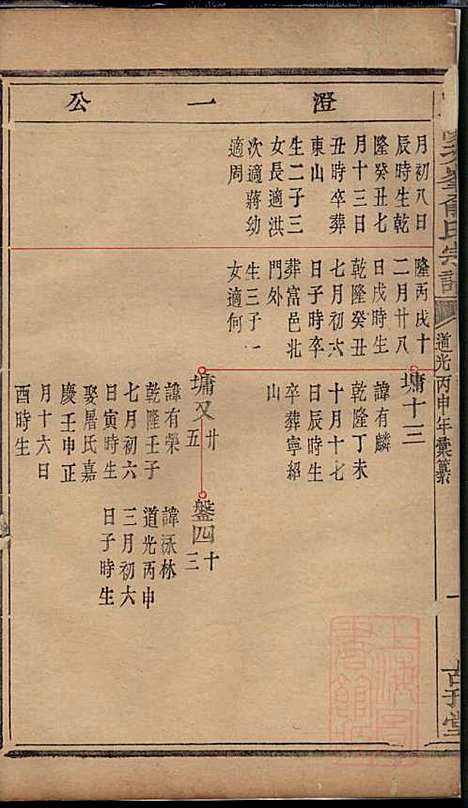 澄一公
月初八日
辰時生乾
隆癸丑七
月十三日
丑時卒葬
東山
生二子三
女長適洪
次適蔣幼
適周
隆丙戌十
二月廿八
日戌時生
乾隆癸丑
七月初六
日子時卒
葬富邑北
門外
生三子一
女適何
墉十三
諱有麟
乾隆丁未
十月十七
日辰時生
卒葬寧紹
山
墉又廿五
諱有榮
乾隆壬子
七月初六
日寅時生
娶屠氏嘉
慶壬申正
月十六日
酉時生
盤四十三
諱泳林
道光丙申
三月初六
日子時生
俞氏宗譜
道光丙申年彙纂
上海
書館